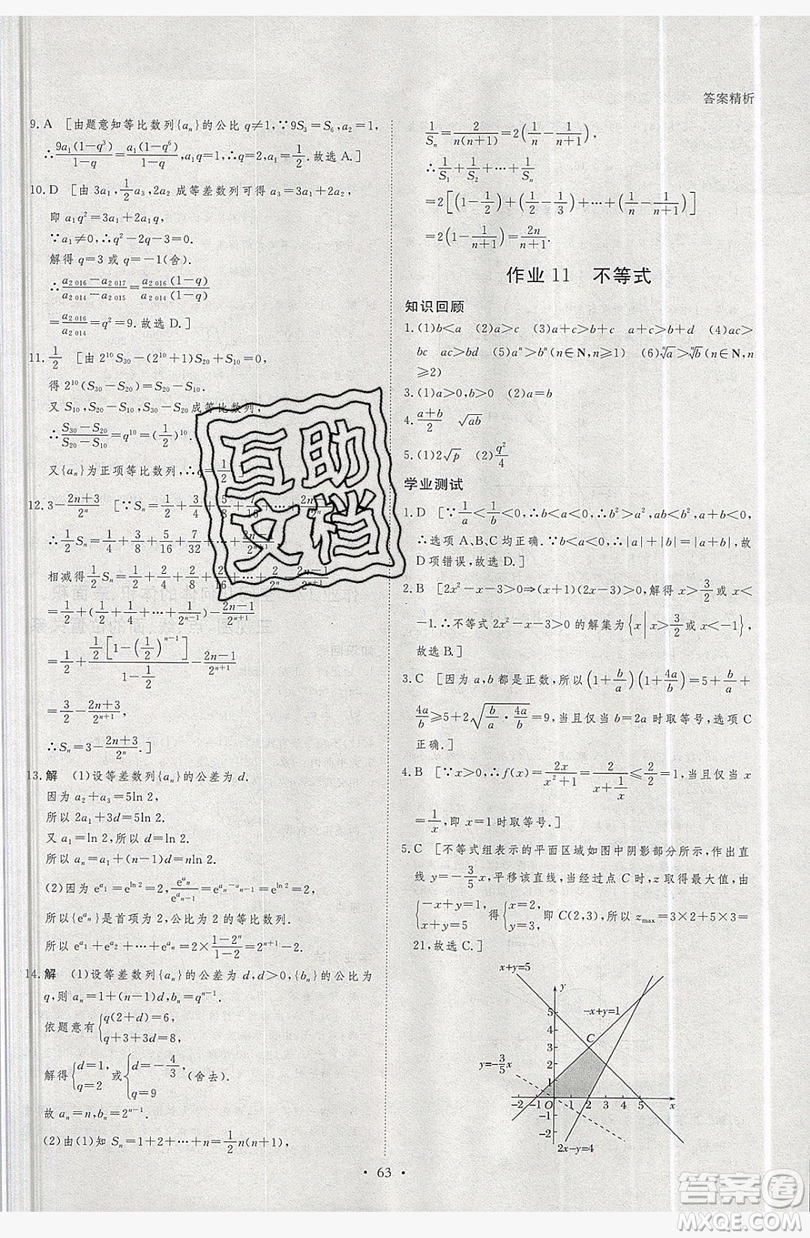 答案精析
9. A [由题意知等比数列{aₙ}的公比 q≠1,∵9S₃=S₆,
∴9a₁(1-q³)/(1-q)=a₁(1-q⁶)/(1-q).故选 A.]
10. D [由 3a₁,1/2 a₃,2a₂ 成等差数列可得 a₃=3a₁+2a₂,
即 a₁q²=3a₁+2a₁q,
∵a₁≠0,∴q²-2q-3=0.
解得 q=3 或 q=-1(舍).
∴(a₂₀₁₆-a₂₀₁₇)/(a₂₀₁₄-a₂₀₁₅)=a₂₀₁₆(1-q)/a₂₀₁₄(1-q)
=a₂₀₁₆/a₂₀₁₄=q²=9.故选 D.]
11. 1/2 [由 2¹⁰S₃₀-(2¹⁰+1)S₂₀+S₁₀=0,
得 2¹⁰(S₃₀-S₂₀)=S₂₀-S₁₀.
又 S₁₀,S₂₀-S₁₀,S₃₀-S₂₀ 成等比数列,
∴(S₃₀-S₂₀)/(S₂₀-S₁₀)=q¹⁰=(1/2)¹⁰,
又{aₙ}为正项等比数列,∴q=1/2
12. 3-(2n+3)/2ⁿ [∵Sₙ=1/2+3/4+5/8+
∴1/2 Sₙ=1/4+3/8+5/16+7/32+
相减得 1/2 Sₙ=1/2+2/4+2/8+
=1/2+(1/2+1/4+1/8+…+1/2ⁿ⁻¹)-(2n-1)/2ⁿ⁺¹
=1/2+1/2[1-(1/2)ⁿ⁻¹]/(1-1/2)-(2n-1)/2ⁿ⁺¹
=3/2-(2n+3)/2ⁿ⁺¹,
∴Sₙ=3-(2n+3)/2ⁿ.]
13. 解 (1)设等差数列{aₙ}的公差为 d.
因为 a₂+a₃=5ln 2,
所以 2a₁+3d=5ln 2,
所以 d=a₁=ln 2,
所以 aₙ=nln 2.
(2)因为 e^a₁=2,e^aₙ/e^aₙ₋₁=e^(aₙ-aₙ₋₁)=2,
所以{e^aₙ}是首项为 2,公比为 2 的等比数列,
所以 e^a₁+e^a₂+…+e^aₙ=2×(1-2ⁿ)/(1-2)=2ⁿ⁺¹-2.
14. 解 (1)设等差数列{aₙ}的公差为 d,d>0,{bₙ}的公比为
q,则 aₙ=1+(n-1)d,bₙ=qⁿ⁻¹.
依题意有{q(2+d)=6,q+3+3d=8,
解得{d=1,q=2 或{d=-4/3,q=9 (舍去).
故 aₙ=n,bₙ=2ⁿ⁻¹.
(2)由(1)知 Sₙ=1+2+…+n=1/2 n(n+1),
1/Sₙ=2/n(n+1)=2(1/n-1/(n+1)),
∴1/S₁+1/S₂+…+1/Sₙ
=2[(1-1/2)+(1/2-1/3)+…+(1/n-1/(n+1))]
=2(1-1/(n+1))=2n/(n+1).
作业 11 不等式
知识回顾
1. (1)b<a (2)a>c (3)a+c>b+c a+c>b+d (4)ac>
bc ac<bc ac>bd (5)aⁿ>bⁿ(n∈N,n≥2) (6)ⁿ√a>ⁿ√b(n∈N,n
≥2)
3. (1)a>0,b>0 (2)a=b
4. (a+b)/2 √ab
5. (1)2√p (2)q²/4
学业测试
1. D [∵1/a<1/b<0,∴b<a<0,∴b²>a²,ab<b²,a+b<0,
∴选项 A、B、C 均正确.∵b<a<0,∴|a|+|b|=|a+b|,故
D 项错误,故选 D.]
2. B [2x²-x-3>0⇒(x+1)(2x-3)>0,解得 x>3/2 或 x<
-1.∴不等式 2x²-x-3>0 的解集为{x|x>3/2或x<-1}.
故选 B.]
3. C [因为 a,b 都是正数,所以(1+b/a)(1+4a/b)=5+b/a+
4a/b≥5+2√(b/a·4a/b)=9,当且仅当 b=2a 时取等号,选项 C
正确.]
4. B [∵x>0,∴f(x)=2x/(x²+1)=2/(x+1/x)≤2/2=1,当且仅当 x
=1/x,即 x=1 时取等号.]
5. C [不等式组表示的平面区域如图中阴影部分所示,作出直
线 y=-3/5 x,平移该直线,当经过点 C 时,z 取得最大值,由
{-x+y=1,x+y=5 得{x=2,y=3,即 C(2,3),所以 zₘₐₓ=3×2+5×3=
21,故选 C.]
x+y=5
y
-x+y=1
5
4
3
2
1
C
y=-3/5 x
-2 -1 O 1 2 3 4 5 x
-1
-2
2x-y=4
• 63 •
互助
文档
答案圈
MXQE.COM